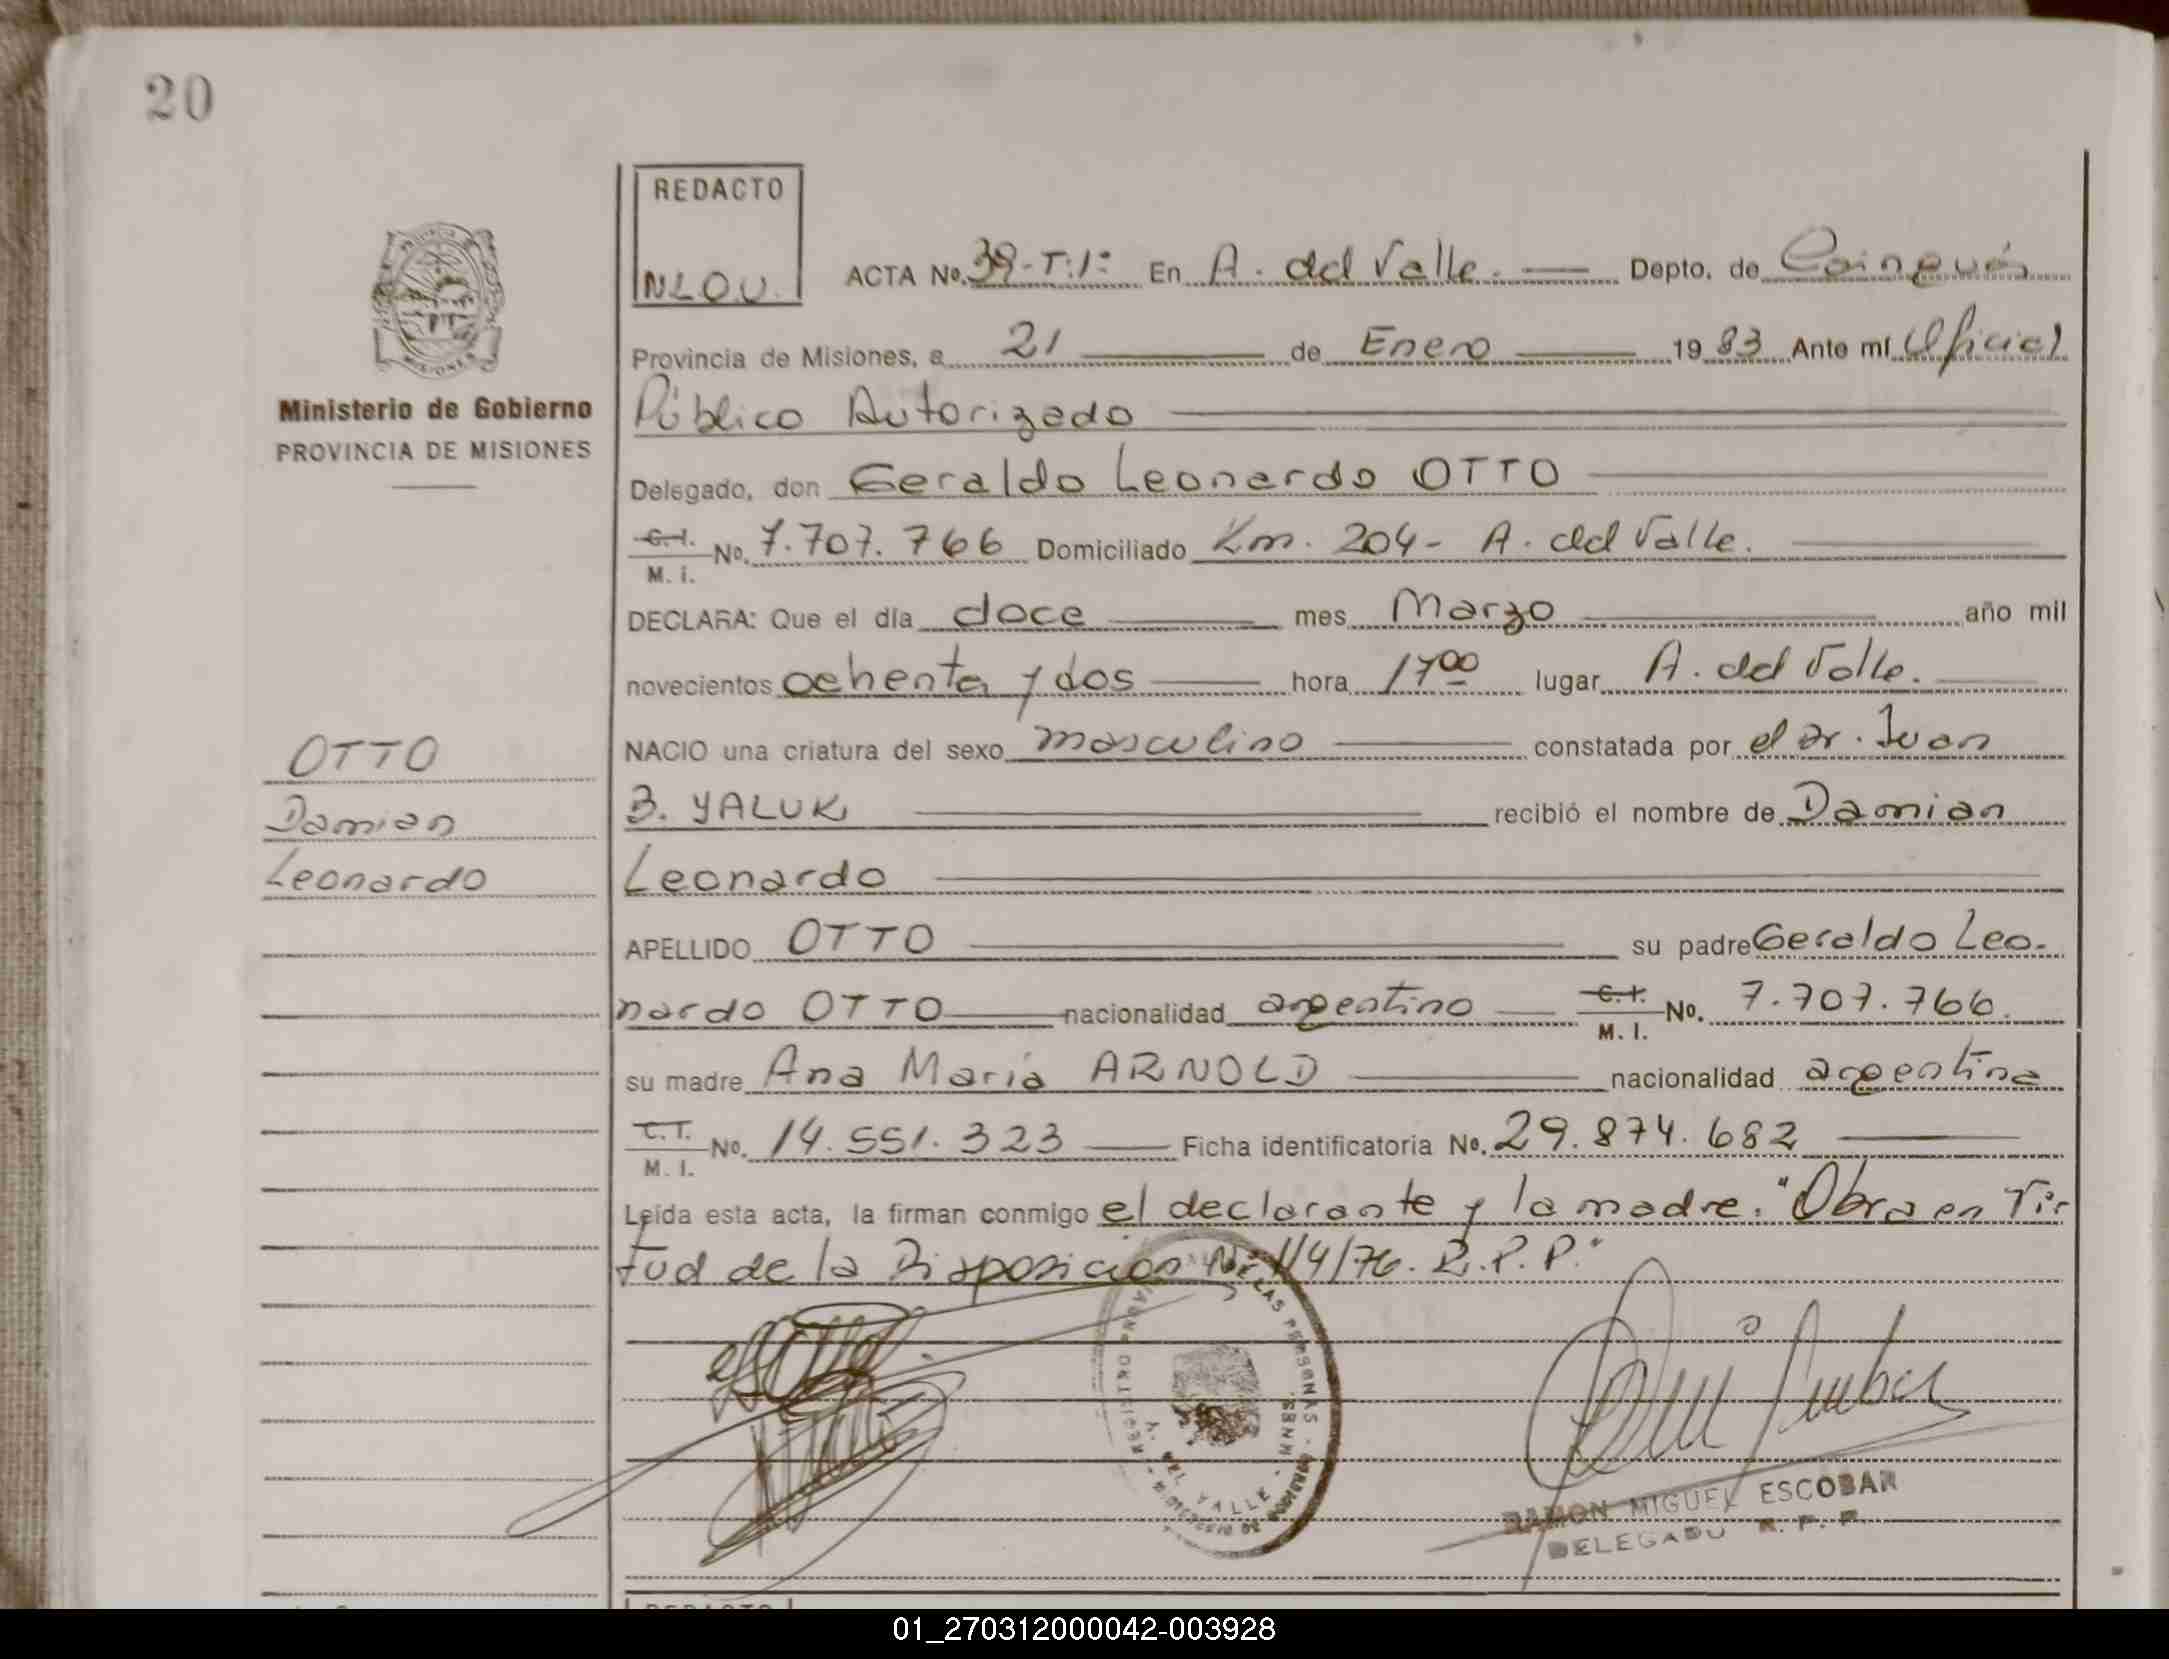 20
REDACTO
N.L.O.V.
ACTA No. 39-T:1º En A. del Valle. Depto. de Cainguás
Provincia de Misiones, a 21 de Enero 1983 Ante mí Oficial
Público Autorizado
Delegado, don Geraldo Leonardo OTTO
C.I. M. I. No. 7.707.766 Domiciliado Km. 204- A. del Valle.
DECLARA: Que el día doce mes Marzo año mil
novecientos ochenta y dos hora 17 00 lugar A. del Valle.
NACIO una criatura del sexo masculino constatada por el Dr. Juan
B. YALUK recibió el nombre de Damian
Leonardo
APELLIDO OTTO su padre Geraldo Leo-
nardo OTTO nacionalidad argentino C.I. M. I. No. 7.707.766.
su madre Ana Maria ARNOLD nacionalidad argentina
C.I. M. I. No. 14.551.323 Ficha identificatoria No. 29.874.682
Leída esta acta, la firman conmigo el declarante y la madre. "Obra en Vir
tud de la Disposicion Nº 114/76. R.P.P."
Ministerio de Gobierno
PROVINCIA DE MISIONES
OTTO
Damian
Leonardo
A. DEL VALLE
RAMON MIGUEL ESCOBAR
DELEGADO R. P. P.
REDACTO
01_270312000042-003928